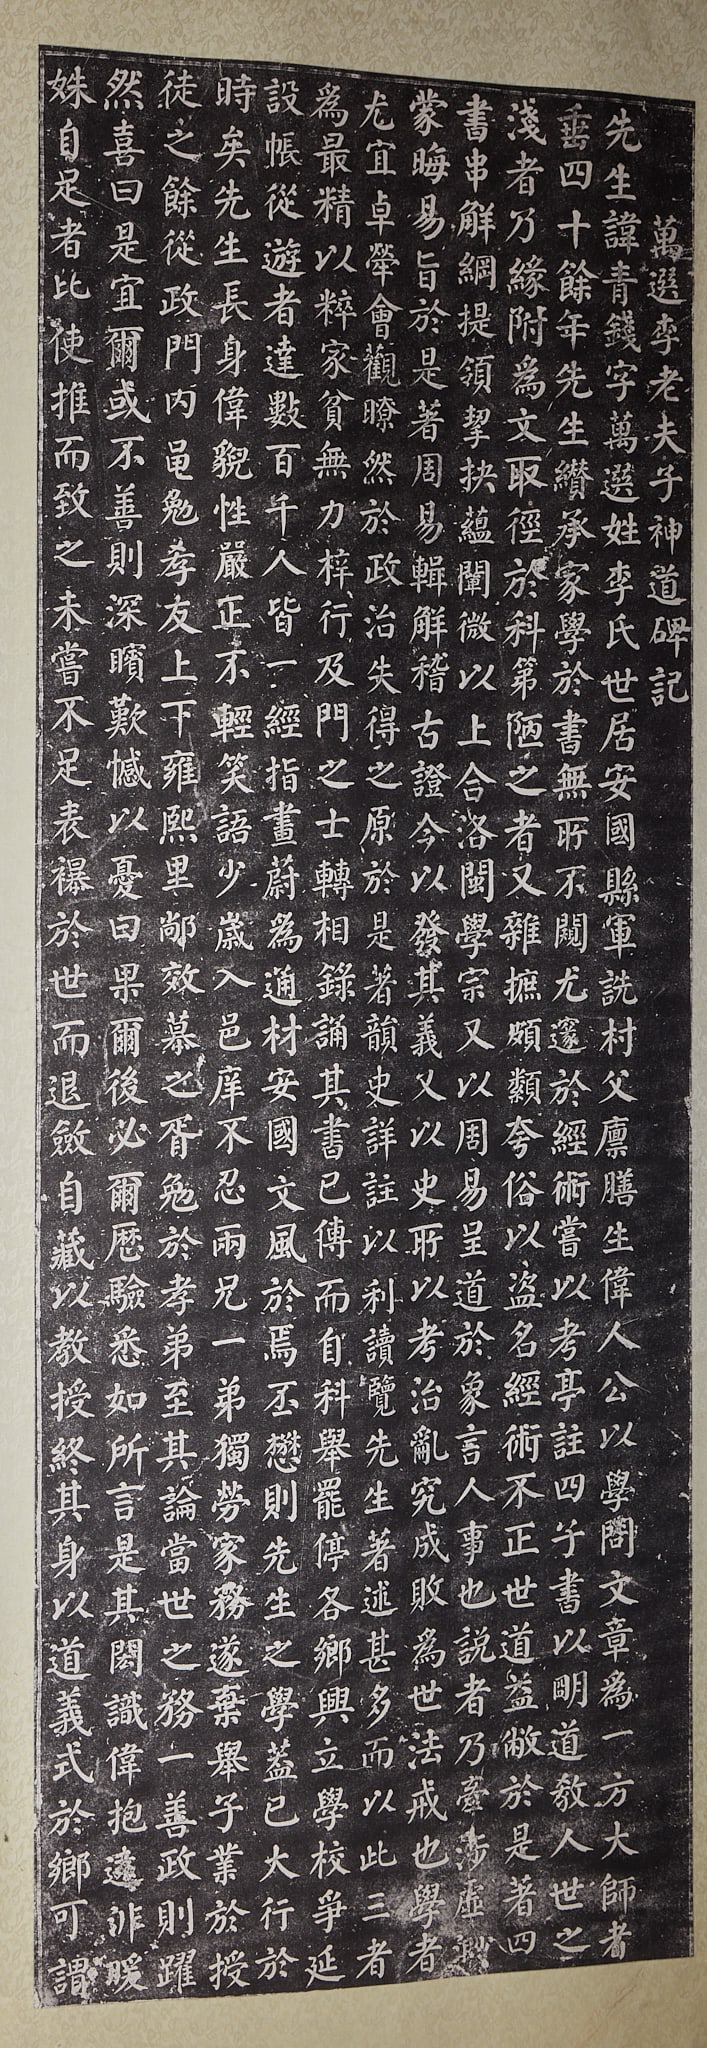 萬選李老夫子神道碑記
先生諱青錢字萬選姓李氏世居安國縣軍詵村父廩膳生偉人公以學問文章為一方大師者
垂四十餘年先生纘承家學於書無所不闚尤邃於經術嘗以考亭註四子書以明道教人世之
淺者乃緣附為文取徑於科第陋之者又雜摭頗纇夸俗以盜名經術不正世道益敝於是著四
書串解綱提領挈抉蘊闡微以上合洛閩學宗又以周易呈道於象言人事也說者乃牽涉虛渺
蒙晦易旨於是著周易輯解稽古證今以發其義又以史所以考治亂究成敗為世法戒也學者
尤宜卓犖會觀瞭然於政治失得之原於是著韻史詳註以利讀覽先生著述甚多而以此三者
為最精以粹家貧無力梓行及門之士轉相錄誦其書已傳而自科舉罷停各鄉興立學校爭延
設帳從遊者達數百千人皆一經指畫蔚為通材安國文風於焉丕懋則先生之學蓋已大行於
時矣先生長身偉貌性嚴正不輕笑語少歲入邑庠不忍兩兄一弟獨勞家務遂棄舉子業於授
徒之餘從政門內黽勉孝友上下雍熙里鄰效慕之胥勉於孝弟至其論當世之務一善政則躍
然喜曰是宜爾或不善則深矉歎憾以憂曰果爾後必爾歷驗悉如所言是其閎識偉抱遠非暖
姝自足者比使推而致之未嘗不足表襮於世而退斂自藏以教授終其身以道義式於鄉可謂